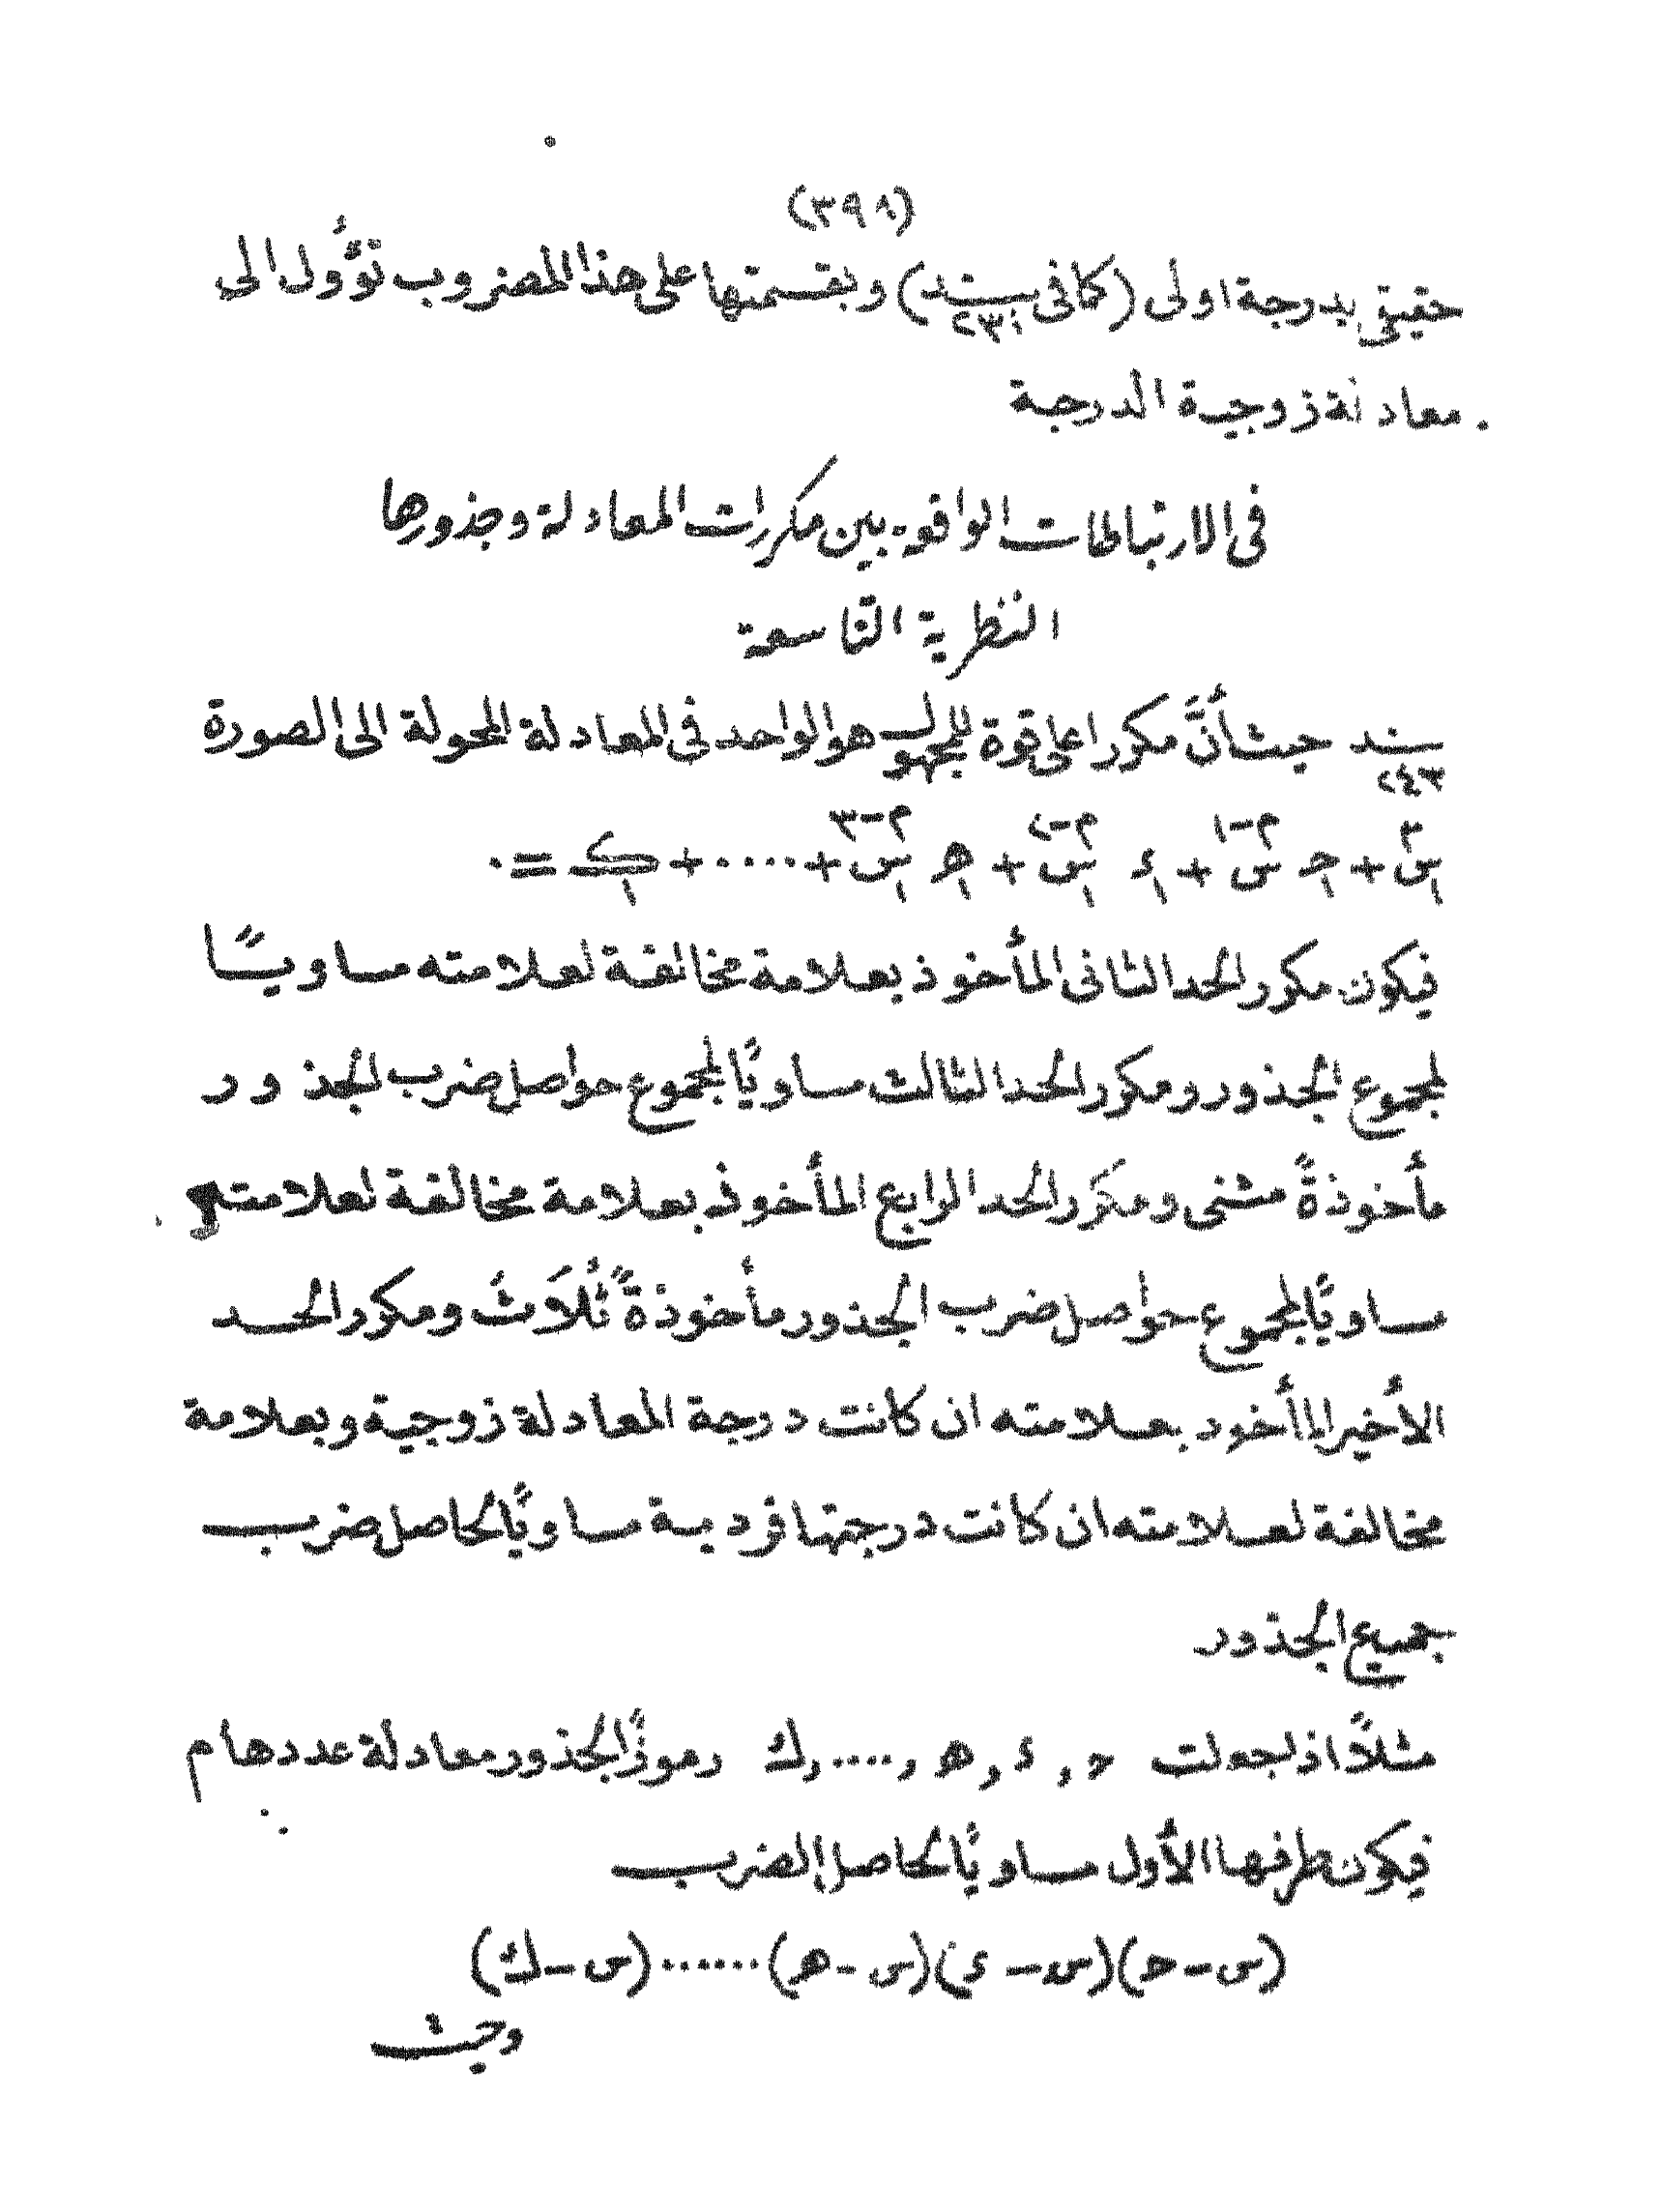 (٣٩٨)
حقيقى بدرجة اولى (كما فى بند ٢٣٠) وبقسمتها على هذا المضروب تؤُول الى
معادلة زوجية الدرجة
فى الارتباطات الواقعة بين مكررات المعادلة وجذورها
النظرية التاسعة
بند ٢٤٣ حيث أنَّ مكرر اعلى قوة للمجهول هو الواحد فى المعادلة المحولة الى الصورة
س^م + حـ س^م-١ + ء س^م-٢ + هـ س^م-٣ + ···· + ك = ٠
فيكون مكرر الحد الثانى المأخوذ بعلامة مخالفة لعلامته مساويًا
لمجموع الجذور ومكرر الحد الثالث مساويًا لمجموع حواصل ضرب الجذور
مأخوذةً مثنى ومكرر الحد الرابع المأخوذ بعلامة مخالفة لعلامته
مساويًا لمجموع حواصل ضرب الجذور مأخوذةً ثُلاَثَ ومكرر الحد
الأخير المأخود بعلامته ان كانت درجة المعادلة زوجية وبعلامة
مخالفة لعلامته ان كانت درجتها فردية مساويًا لحاصل ضرب
جميع الجذور
مثلاً اذ لجعلت حـ , ء , هـ , ···· , ك رموزًا لجذور معادلة عددها م
فيكون طرفها الأول مساويًا لحاصل الضرب
(س - حـ)(س - ء)(س - هـ) ······ (س - ك)
وحيث